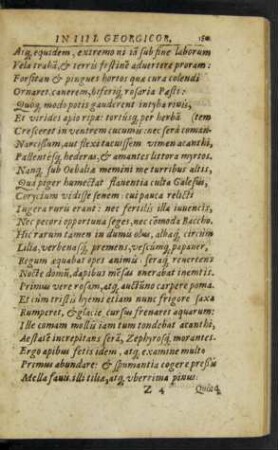 IN IIII. GEORGICOR. 180
Atq; equidem, extremo ni iã sub fine laborum
Vela trahã, & terris festinẽ aduertere proram:
Forsitan & pingues hortos quæ cura colendi
Ornaret, canerem, biferiq; rosaria Pæsti:
Quoq; modo potis gauderent intyba riuis,
Et virides apio ripæ: tortusq; per herbã (tem
Cresceret in ventrem cucumis: nec será coman-
Narcissum, aut flexi tacuissem vimen acanthi,
Pallentesq; hederas, & amantes littora myrtos.
Nanq; sub Oebaliæ memini me turribus altis,
Qua niger humectat flauentia culta Galesus,
Corycium vidisse senem: cui pauca relicti
Iugera ruris erant: nec fertilis illa iuuencis,
Nec pecori opportuna seges, nec cõmoda Baccho.
Hic rarum tamen in dumis olus, albaq; circùm
Lilia, verbenasq; premens, vescumq; papauer,
Regum æquabat opes animis: seraq; reuertens
Nocte domũ, dapibus mẽsas onerabat inemtis.
Primus vere rosam, atq; auctũno carpere poma.
Et cùm tristis hyems etiam nunc frigore saxa
Rumperet, & glacie cursus frenaret aquarum:
Ille comam mollis iam tum tondebat acanthi,
Aestatẽ increpitans serã, Zephyrosq; morantes.
Ergo apibus fetis idem, atq; examine multo
Primus abundare: & spumantia cogere pressis
Mella fauis: illi tiliæ, atq; vberrima pinus.
Z 4 Quotq;